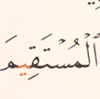 الْمُسْتَقِيمَ